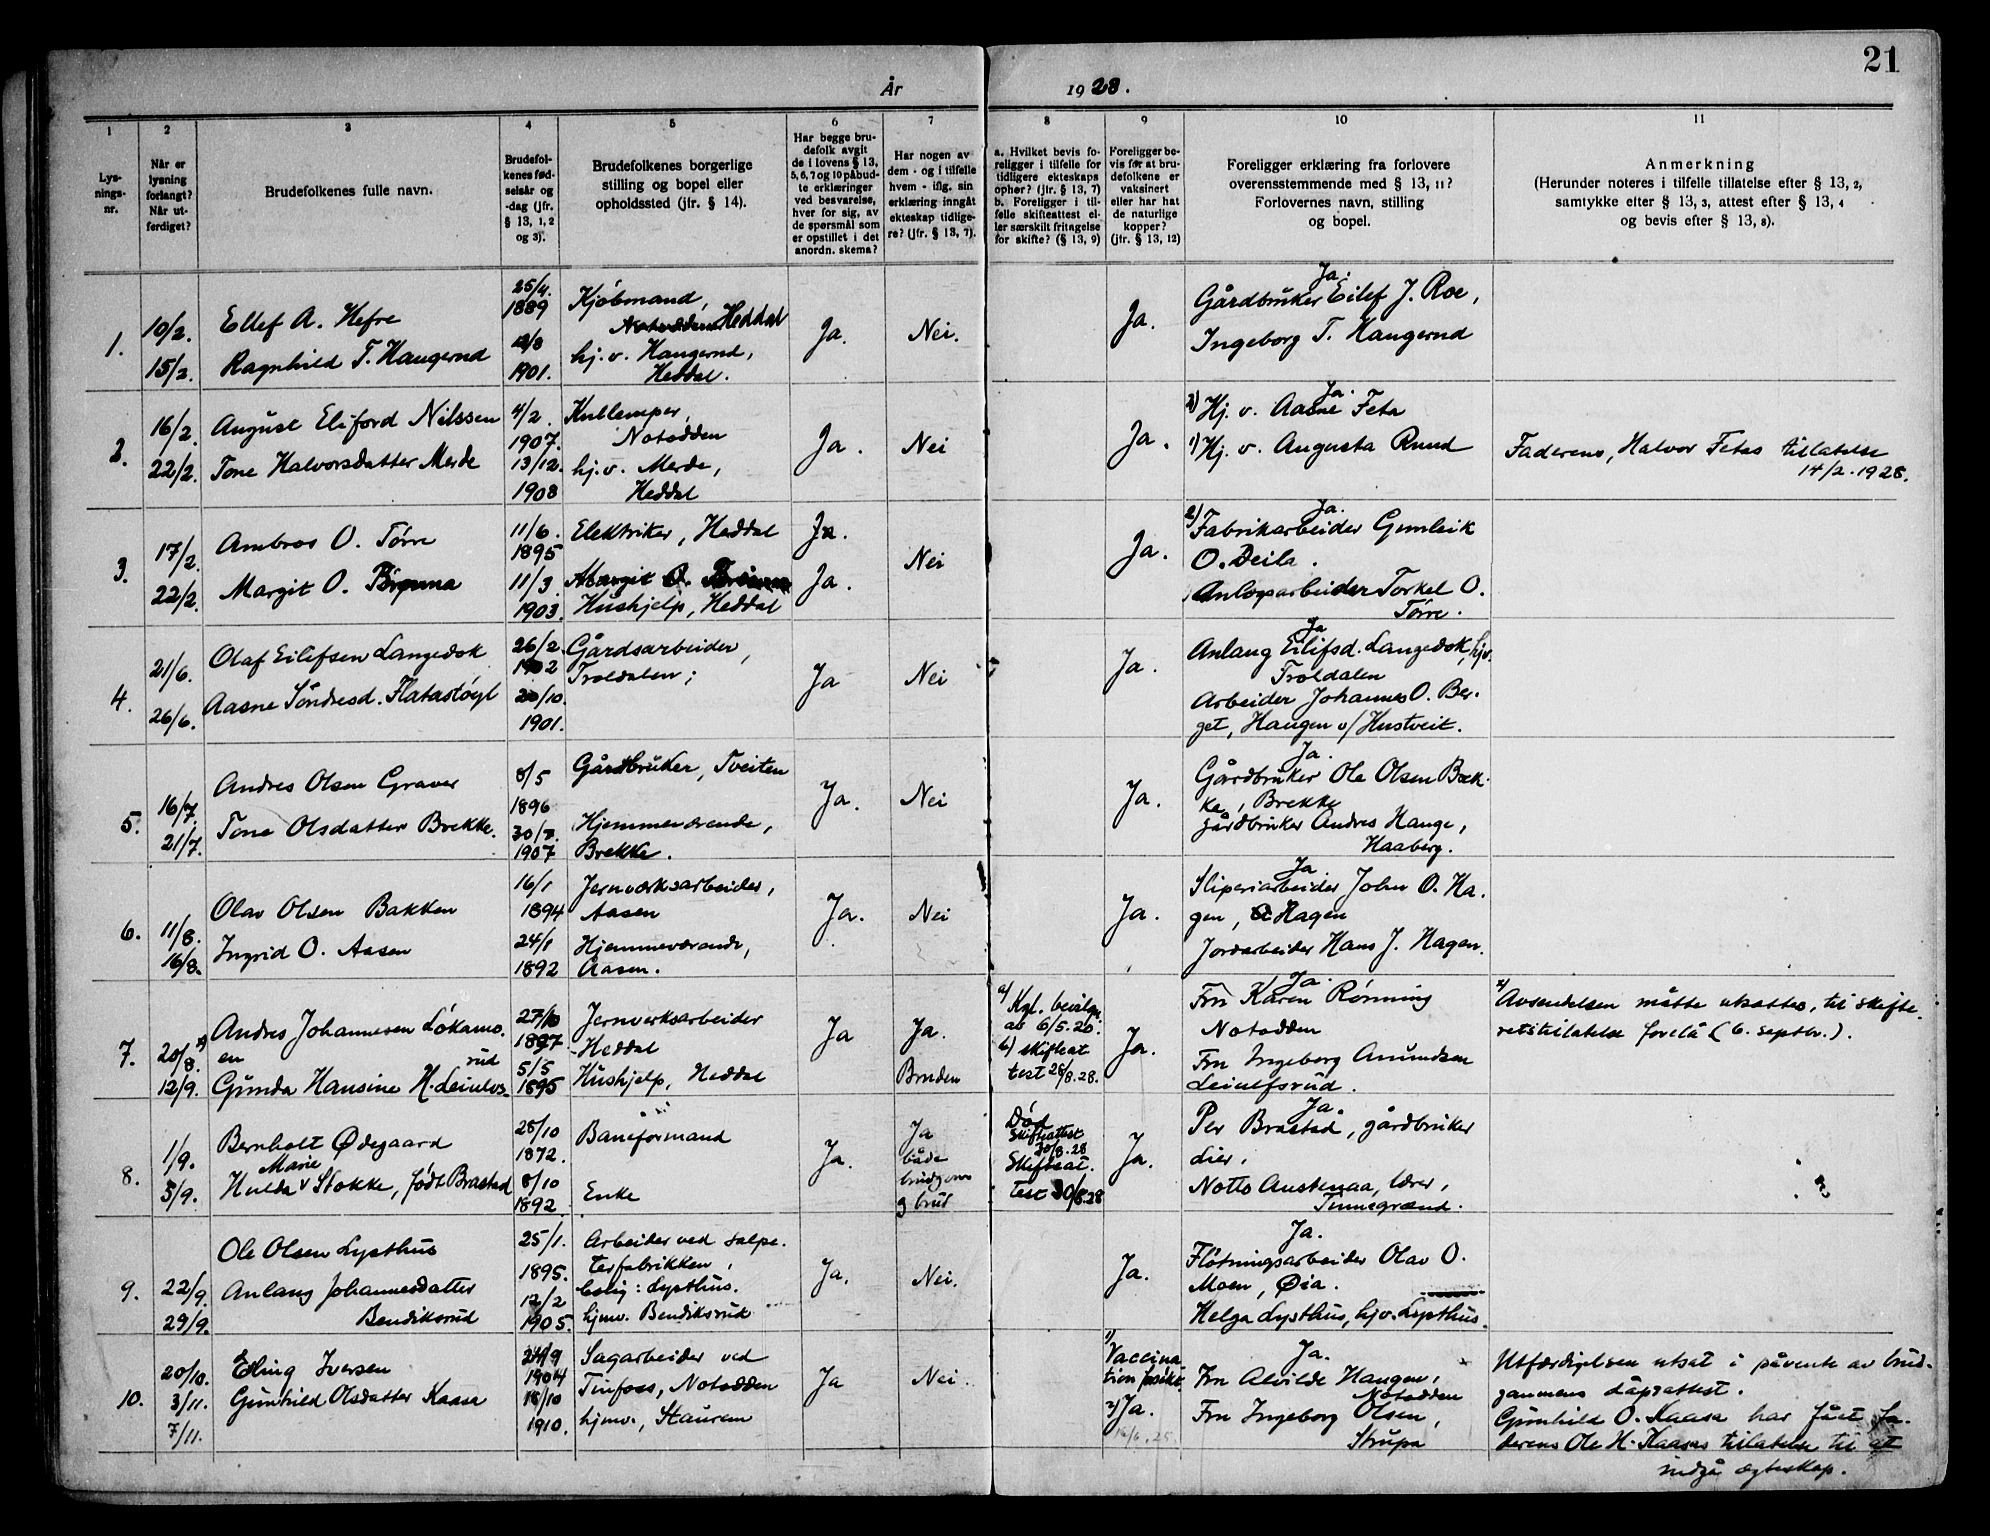 21
År 1928.
1 2 3 4 5 6 7 8 9 10 11
Lys-
nings-
nr.
Når er
lysning
forlangt?
Når ut-
ferdiget?
Brudefolkenes fulle navn.
Brudefol-
kenes fød-
selsår og
-dag (jfr.
§ 13, 1, 2
og 3).
Brudefolkenes borgerlige
stilling og bopel eller
opholdssted (jfr. § 14).
Har begge bru-
defolk avgit
de i lovens § 13,
5, 6, 7 og 10 påbud-
te erklæringer
ved besvarelse,
hver for sig, av
de spørsmål som
er opstillet i det
anordn. skema?
Har nogen av
dem - og i tilfelle
hvem - iflg. sin
erklæring inngåt
ekteskap tidlige-
re? (jfr. § 13, 7).
a. Hvilket bevis fo-
religger i tilfelle for
tidligere ekteskaps
ophør? (jfr. § 13, 7)
b. Foreligger i til-
felle skifteattest el-
ler særskilt fritagelse
for skifte? (§ 13, 9)
Foreligger be-
vis for at bru-
defolkene er
vaksinert
eller har hat
de naturlige
kopper?
(jfr. § 13, 12)
Foreligger erklæring fra forlovere
overensstemmende med § 13, 11?
Forlovernes navn, stilling
og bopel.
Anmerkning
(Herunder noteres i tilfelle tillatelse efter § 13, 2,
samtykke efter § 13, 3, attest efter § 13, 4
og bevis efter § 13, 8).
1.
10/2.
15/2.
Ellef A. Hefre
Ragnhild T. Haugerud
25/4.
1889
/8
1901.
Kjöbmand,
Heddal
hj. v. Haugerud,
Heddal.
Ja.
Nei.
Ja.
Ja.
Gårdbruker Eilef J. Roe,
Ingeborg T. Haugerud
2.
16/2.
22/2.
August Eliford Nilssen
Tone Halvorsdatter Merde
4/2.
1907.
13/12.
1908
Kullemper,
Notodden
hj. v. Merde,
Heddal
Ja.
Nei
Ja.
Ja.
2) Hj. v. Aasne Feta
1) Hj. v. Augusta Ruud
Faderens, Halvor Fetas tillatelse
14/2. 1928.
3.
17/2.
22/2.
Ambros O. Törre
Margit O.
11/6.
1895
11/3.
1903.
Elektriker, Heddal
Margit O.
Hushjelp, Heddal
Ja.
Ja.
Nei
Ja.
Ja.
2) Fabrikarbeider Gunleik
O. Deila.
Anlægsarbeider Torkel O.
Törre.
4.
21/6.
26/6.
Olaf Eilefsen Langedok
Aasne Söndresd. Flatastöyl
26/2.
1902
20/10.
1901.
Gårdsarbeider,
Troldalen;
Ja
Nei
Ja.
Ja
Anlaug Eilifsd. Langedok, hjv.
Troldalen
Arbeider Johannes O. Ber-
get, Haugen v/ Hustveit.
5.
16/7.
21/7.
Andres Olsen Graver
Tone Olsdatter Brekke.
8/5
1896
30/7.
1907
Gårdbruker, Tveiten
Hjemmeværende,
Brekke.
Ja.
Nei
Ja.
Ja.
Gårdbruker Ole Olsen Brek-
ke, Brekke
gårdbruker Andres Hauge,
Haaberg.
6.
11/8.
16/8.
Olav Olsen Bakken
Ingrid O. Aasen
16/1
1894
24/1
1892
Jernverksarbeider,
Aasen
Hjemmeværende,
Aasen.
Ja.
Nei
Ja.
Ja
Sliperiarbeider John O. Ha-
gen, Hagen
Jordarbeider Hans J. Hagen.
7.
20/8.
12/9.
Andres Johannesen Lökams-
en
rud
Gunda Hansine H. Leiulvs-
27/10
1897
5/5
1895
Jernverksarbeider
Heddal
Hushjelp, Heddal
Ja
Ja.
Bruden
a) Kgl. bevilgn.
av 6/5.20.
b) skifteat
test 28/8.28.
Ja.
Ja.
Fru Karen Rönning
Notodden
Fru Ingeborg Amundsen
Leiulfsrud.
x) Avsendelsen måtte utsettes, til skifte-
retstillatelse forelå (6. septbr.).
8.
1/9.
3/9.
Bernholt Ødegaard
Marie
Hulda v Stokke, født Brastad
28/10
1872.
8/10
1892.
Baneformand
Enke
Ja.
Ja
både
brudgom
g brud
Død
Skifteattest
30/8.28
Skifteat.
test 30/8.28
Ja.
Ja.
Per Brastad, gårdbruker
Lier,
Notto Austenaa, lærer,
Tinnegrænd.
9.
22/9.
29/9.
Ole Olsen Lysthus
Anlaug Johannesdatter
Bendiksrud
25/1.
1895.
12/2
1905.
Arbeider ved salpe-
terfabrikken,
bolig: Lysthus.
hjmv. Bendiksrud
Ja.
Nei.
Ja.
Ja.
Flötningsarbeider Olav O.
Moen, Øia.
Helga Lysthus, hjv. Lysthus.
10.
20/10.
3/11.
7/11.
Elling Iversen
Gunhild Olsdatter Kaasa
24/9
1904
18/10
1910.
Sagarbeider ved
Tinfoss, Notodden
hjmv., Staurem
Ja
Nei.
1) Vaccina
tion
2) Ja.
16/6.25.
Ja.
Fru Alvilde Haugen,
Notodden
Fru Ingeborg Olsen,
Strupa
Utferdigelsen utsat i påvente av brud-
gommens dåpsattest.
Gunhild O. Kaasa har fået fa-
derens Ole H. Kaasas tillatelse til at
indgå ægteskap.